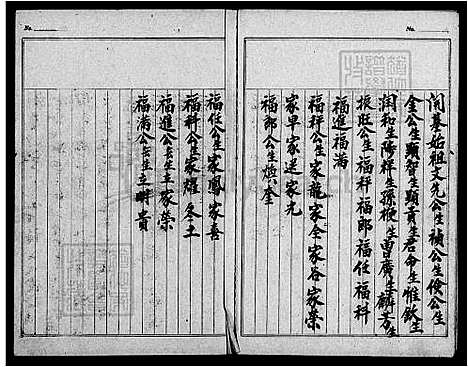 No.
No.
開基始祖文先公生禎公生俊公生
金公生顯智生顕貢生君命生惟欽生
潤和生陽祥生孫梗生曹廣生麟芳生
振旺公生福秤福郎福任福科
福進福滿
福秤公生家龍家全家谷家榮
家早家送家光
福郎公生煥奎
福任公生家鳳家喜
福科公生家耀冬土
福進公長生辛家榮
福滿公長生立 貴